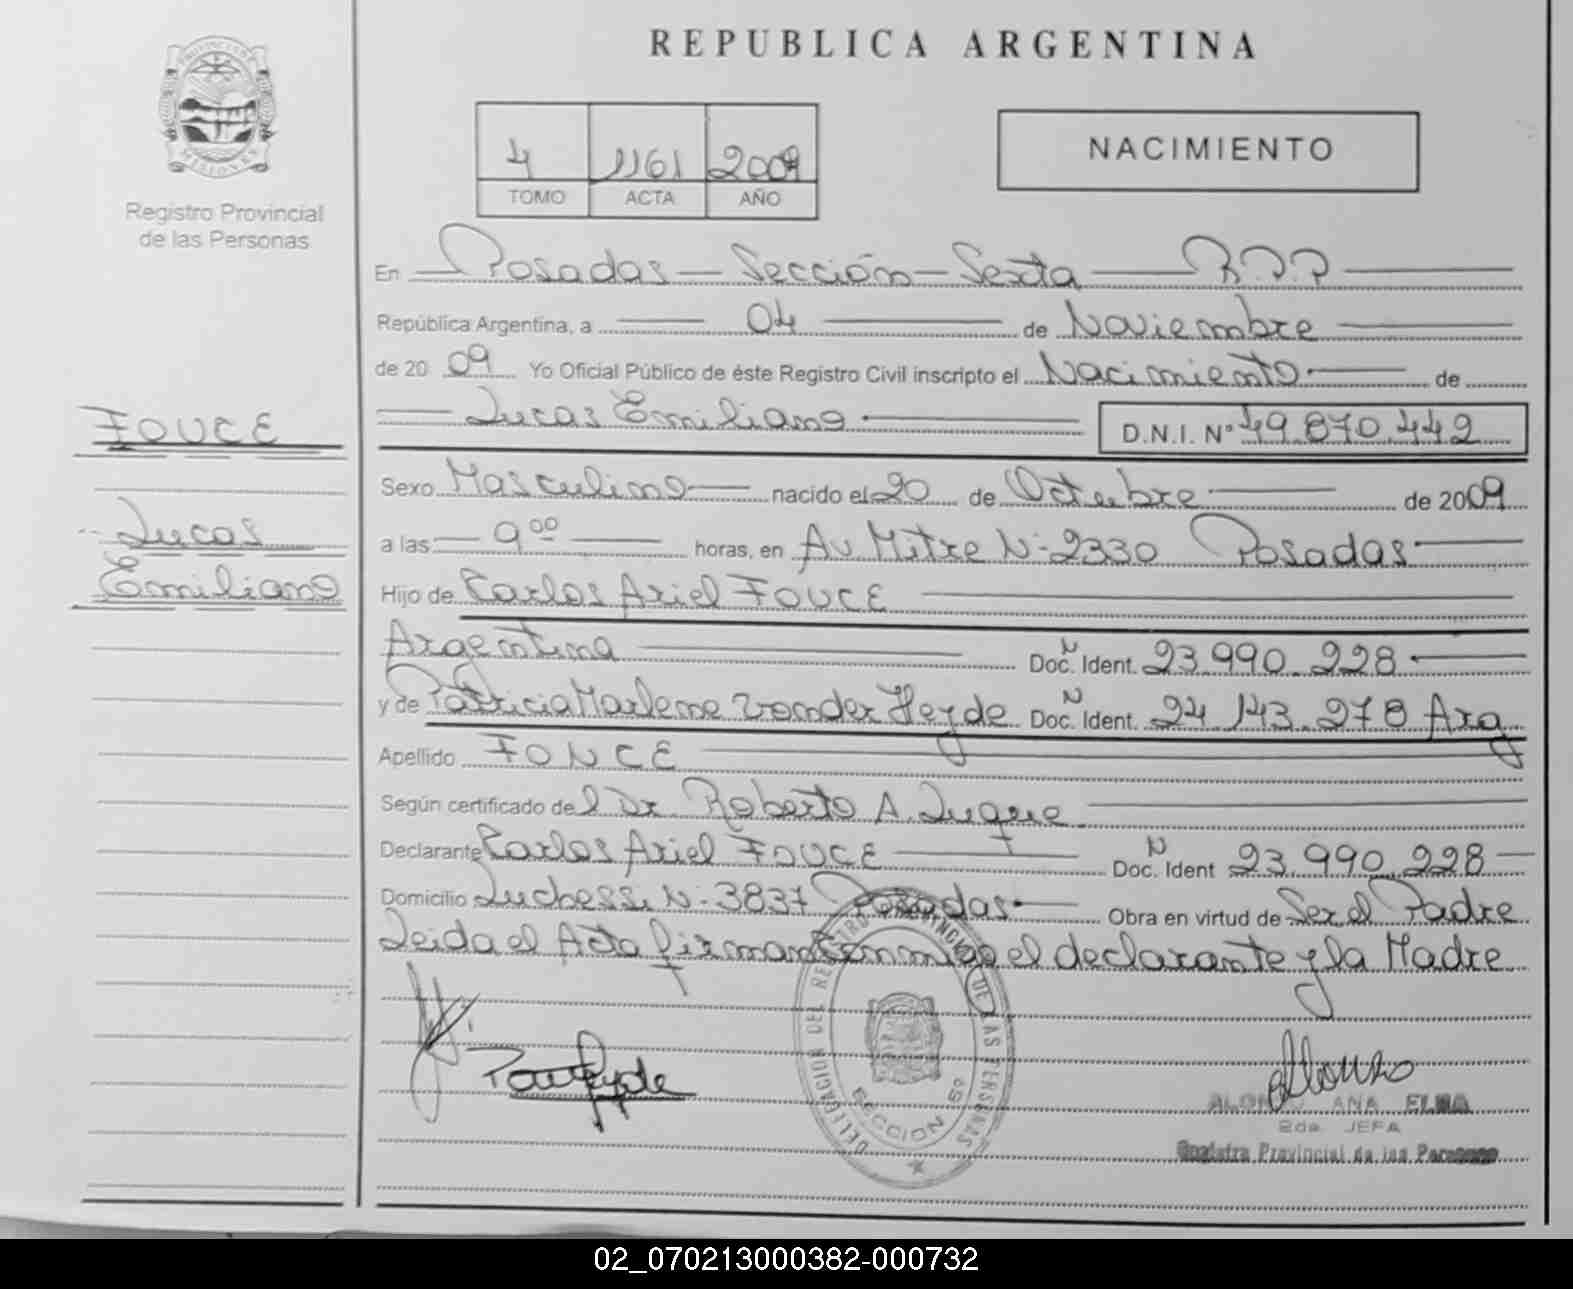 REPUBLICA ARGENTINA
PROVINCIA DE
MISIONES
Registro Provincial
de las Personas
4 1161 2009
TOMO ACTA AÑO
NACIMIENTO
En Posadas - Sección - Sexta R.P.P
República Argentina, a 04 de Noviembre
de 2009 Yo Oficial Público de éste Registro Civil inscripto el Nacimiento de
Lucas Emiliano D.N.I. Nº 49.870.442
FOUCE
Lucas
Emiliano
Sexo Masculino nacido el 20 de Octubre de 2009
a las 9 00 horas, en Av Mitre Nº 2330 Posadas
Hijo de Carlos Ariel FOUCE
Argentina Doc. N Ident. 23.990.228
y de Patricia Marlene Vonder Heyde Doc. N Ident. 24.143.278 Arg
Apellido FOUCE
Según certificado del Dr. Roberto A. Luque
Declarante Carlos Ariel FOUCE Doc. N Ident 23.990.228
Domicilio Luchessi Nº 3837 Posadas Obra en virtud de Ser el Padre
Leida el Acta firman conmigo el declarante y la Madre
DELEGACION DEL REGISTRO PROVINCIAL DE LAS PERSONAS
SECCION 6º
ALONSO ANA ELMA
2da JEFA
Registro Provincial de las Personas
02_070213000382-000732